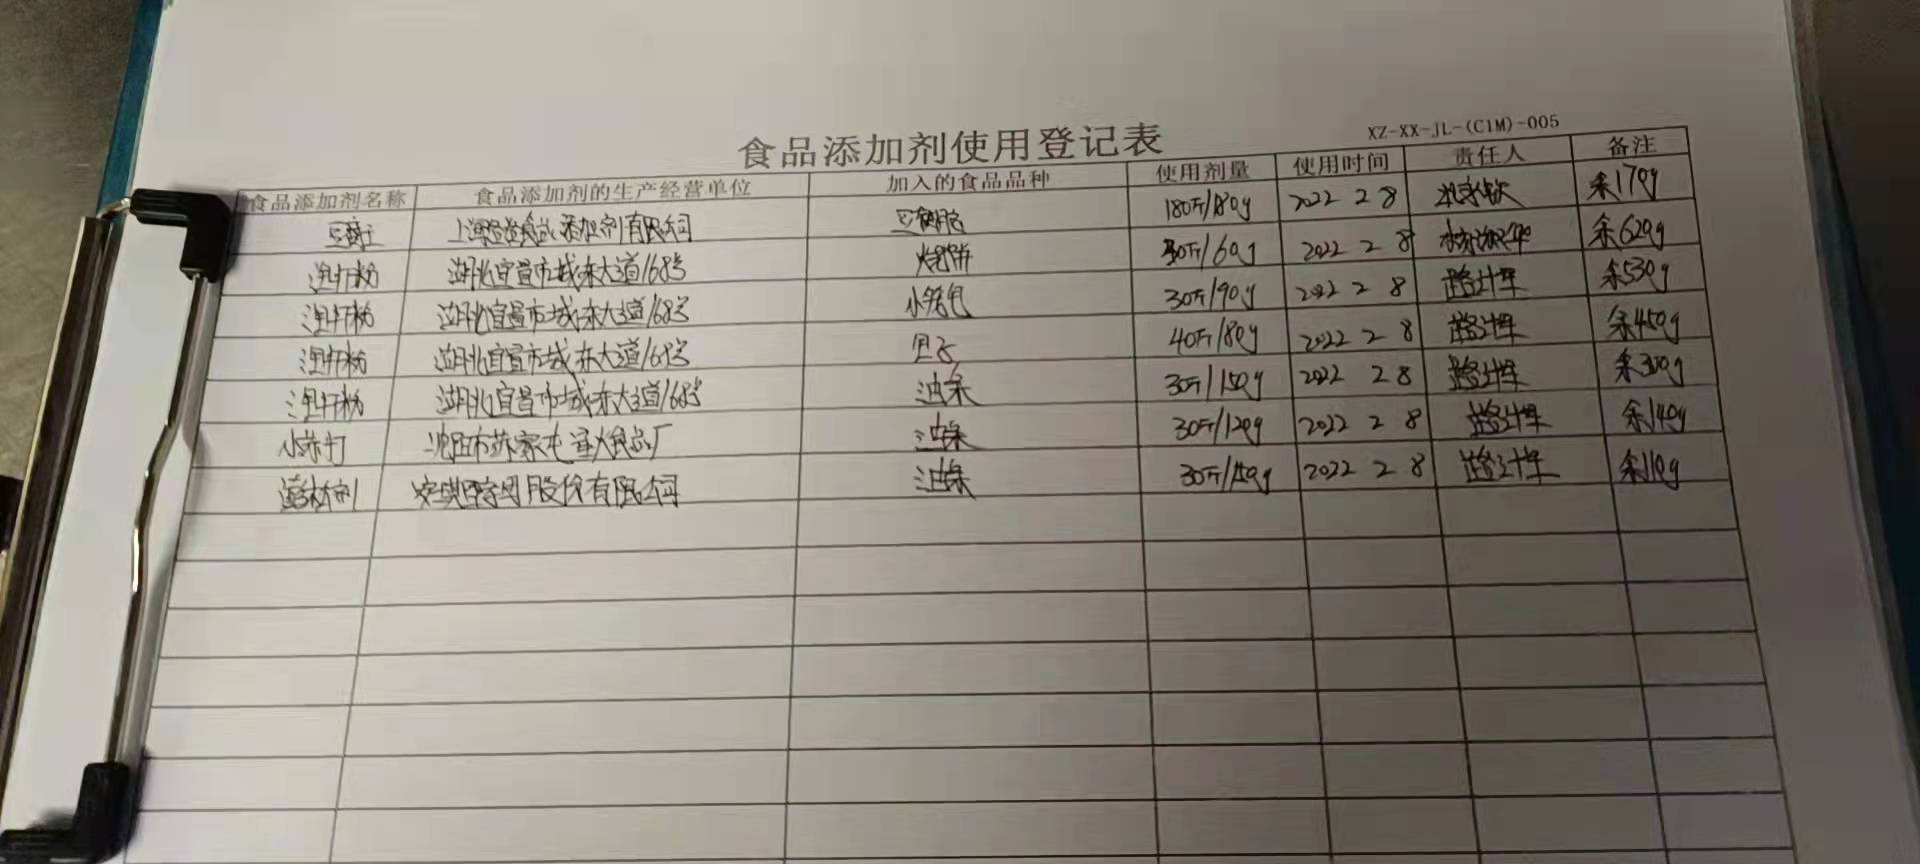 食品添加剂使用登记表
XZ-XX-JL-(C1M)-005
食品添加剂名称 食品添加剂的生产经营单位 加入的食品品种 使用剂量 使用时间 责任人 备注
上海 食 添加剂有限公司 180斤/180g 2022 2 8 余170g
泡打粉 湖北宜昌市城东大道168号 烧饼 30斤/60g 2022 2 8 余620g
泡打粉 湖北宜昌市城东大道168号 小笼包 30斤/90g 2022 2 8 余530g
泡打粉 湖北宜昌市城东大道168号 包子 40斤/80g 2022 2 8 余450g
泡打粉 湖北宜昌市城东大道168号 油条 30斤/150g 2022 2 8 余300g
小苏打 沈阳市苏家屯 食品厂 油条 30斤/120g 2022 2 8 余140g
安琪酵母股份有限公司 油条 30斤/150g 2022 2 8 余110g